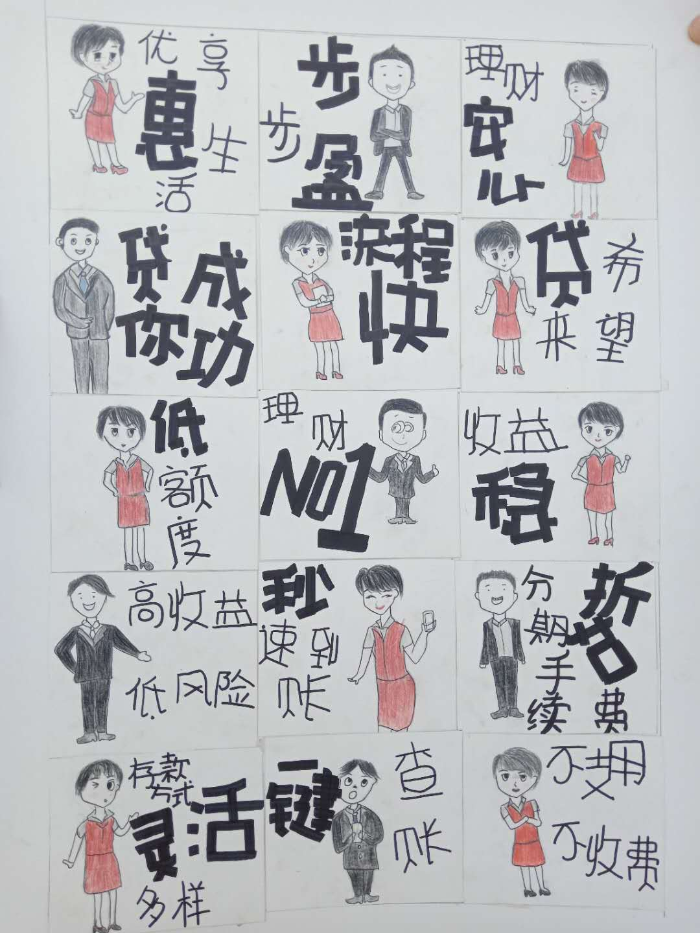 优享
惠生
活
步
步
盈
理财
安
心
贷成
你功
流程
快
贷希
来望
低
额
度
理财
NO1
收益
稳
高收益
低风险
秒
速到
账
分折
期
手
续费
存款
方式
灵活
多样
一
键
查
账
不
用
不收费